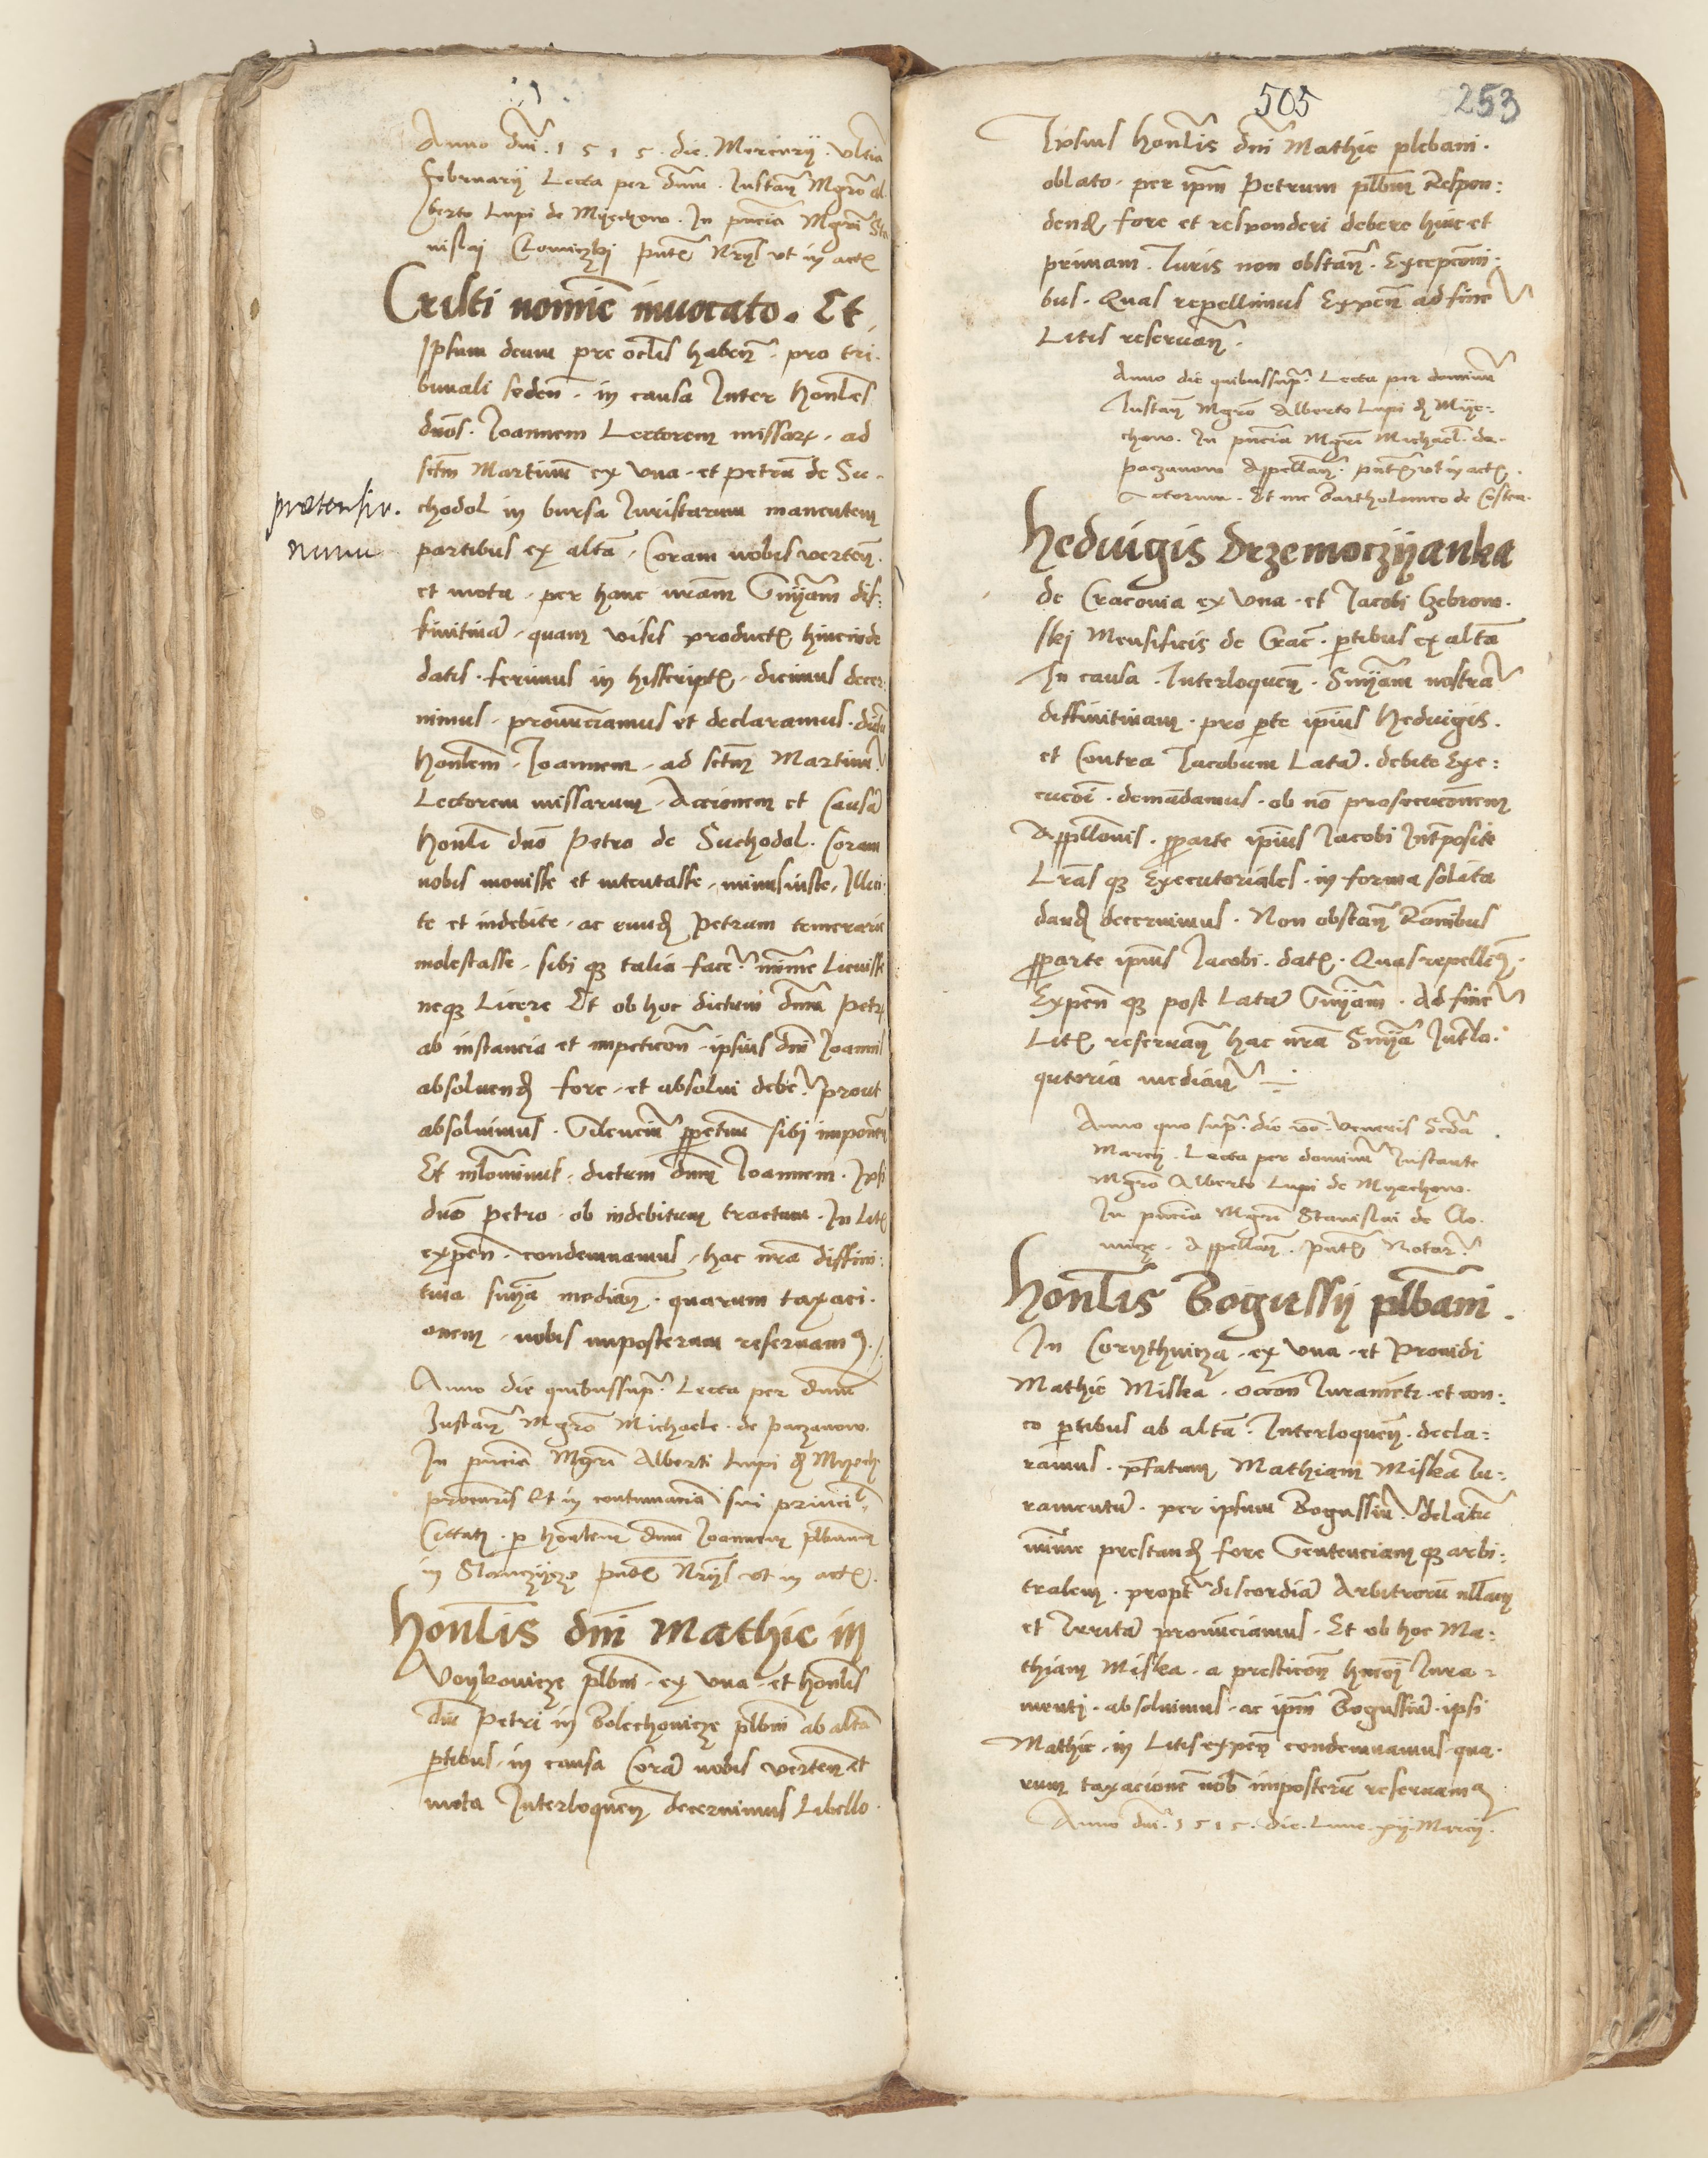 Anno dni . 1 5 1 5 . die . Mercurij . ultia
februarij Lecta per dnm . Instan Mgro Al
berto Lupi de Myechow . In pncia Mgri Sta
nislai Clomiczkj pnte Nrijs ut in acte
Cristi nomie invocato . Et
Ipsum deum pre oclis haben . pro tri .
bunali seden . in causa Inter honles
dnos . Ioannem Lectorem missarz . ad
sctm Martinu ex una . et petru de Su .
chodol in bursa Iuristarum manentem
pretensiv .
nunu
partibus ex alta . Coram nobis verten .
et mota . per hanc nram Snijam dif :
finitiva . quam visis producte hincinde
datis . ferimus in hisscripte . dicimus decer
nimus . pronunciamus et declaramus . dictu
honlem . Ioannem . ad sctm Martinu
Lectorem missarum . Accionem et Causa
honli dno Petro de Suchodol . Coram
nobis movisse et intentasse . minusiuste . Illici
te et indebite . ac eund Petrum temerarie
molestasse . sibi qz talia face . minime Licuisse
neqz Licere Et ob hoc dictum dnm Petrz
ab instancia et impeticon . ipsius dni Ioannis
absoluend fore . et absolui debe . prout
absoluimus . Silenciu ppetuu sibi imponen
Et nlominus . dictum dnm Ioannem . Ipsi
dno Petro . ob indebitum tractum . In Lite
expen . condemnamus . hac nra diffini :
tiva snija median . quarum taxaci .
onem . nobis imposterum reservam .
Anno die quibussupr Lecta per dnm
Instan Mgro Michaele . de paczanow .
In pncia Mgri Alberti Lupi d Myech
procuris Et in contumacia sui principl
Cittati . p honlem dnm Ioannem plbanum
in Slomczijcze pnte Nrijs ut in acte .
honlis dni Mathie in
Voykowicze plbni . ex una . et honlis
dni Petri in Bolechowicze plbni ab alta
ptibus . in causa Cora nobis verten et
mota Interloquen decernimus Libello .
505 253
Ipsius honlis dni Mathie plebani .
oblato . per ipm Petrum plbm Respon :
dend fore et responderi debere hinc et
primam . Iuris non obstan . Excepconi :
bus . Quas repellimus Expen ad fine
Litis reservan .
Anno die quibussupr Lecta per dominu
Instan Mgro Alberto Lupi d Myje :
chow . In pncia Mgri Michael . de .
paczanow Appellan . pnte ut in acte .
Actorum . Et me Bartholomeo de Costen .
Hedwigis Drzemoczijanka
de Cracovia ex una . et Iacobi Gzebrow .
skj Mensificis de Crac . ptibus ex alta
In causa . Interloquen . Snijam nostra
diffinitivam . pro pte ipius Hedvigis .
et Contra Iacobum Lata . debite Exe :
cucoi . demadamus . ob no prosecuconem
Appllonis . pparte ipius Iacobi Intposite
Lras qz Executoriales . in forma solita
dand decernimus . Non obstan Ronibus
pparte ipius Iacobi . date . Quas repellem .
Expen qz post Lata Snijam . Ad fine
Lite reservan hac nra Snija Intlo .
qutoria median
Anno quo supr . die vo . Veneris Scda .
Marcij . Lecta per dominu Instante
Mgro Alberto Lupi de Myechow .
In pncia Mgri Stanislai de Clo .
micze . Appellan . pnte Notar
Honlis Bogussij plbani .
In Corythnicza . ex una . et Providi
Mathie Miska . occon Iuramenti . et con :
co ptibus ab alta . Interloquen . decla :
ramus . pfatum Mathiam Miska Iu :
ramentu . per ipsum Bogussiu delatu
minime prestand fore Sentenciam qz arbi :
tralem . propt discordia Arbitroru nllam
et Irrita pronunciamus . Et ob hoc Ma :
thiam Miska . a presticon hmoi Iura :
menti . absoluimus . ac ipm Bogussiu . ipsi
Mathie . in Litis expen condemnamus qua .
rum taxacione nob imposteru reservam
Anno dni . 1 5 1 5 . die . Lune . xij . Marcij .